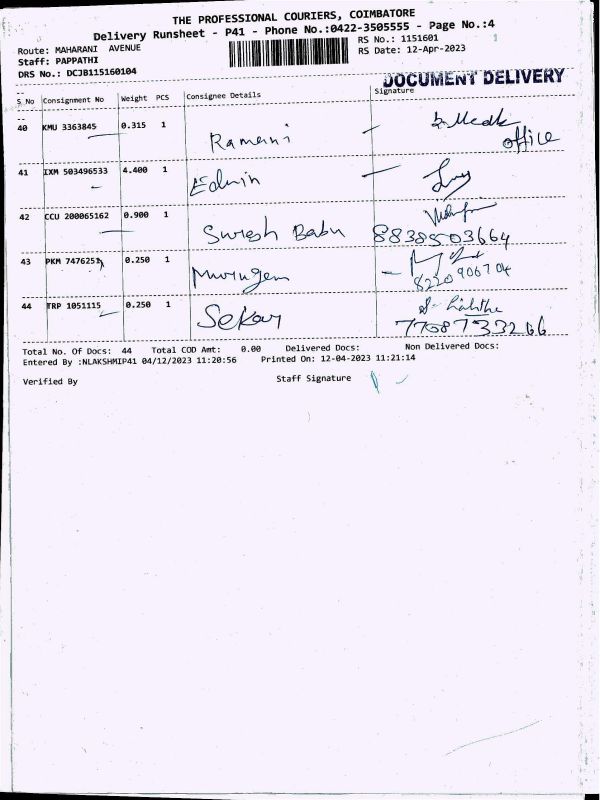 THE PROFESSIONAL COURIERS, COIMBATORE
Delivery Runsheet - P41 - Phone No.:0422-3505555 - Page No.:4
Route: MAHARANI AVENUE
RS No.: 1151601
Staff: PAPPATHI
RS Date: 12-Apr-2023
DRS No.: DCJB115160104
DOCUMENT DELIVERY
S No Consignment No Weight PCS Consignee Details Signature
40 KMU 3363845 0.315 1 Ramani office
41 IXM 503496533 4.400 1 Edwin
42 CCU 200065162 0.900 1 Suresh Babu 8838503664
43 PKM 7476251 0.250 1 Murugan 8220906704
44 TRP 1051115 0.250 1 Sekar 7708733266
Total No. Of Docs: 44 Total COD Amt: 0.00 Delivered Docs: Non Delivered Docs:
Entered By :NLAKSHMIP41 04/12/2023 11:20:56 Printed On: 12-04-2023 11:21:14
Verified By Staff Signature